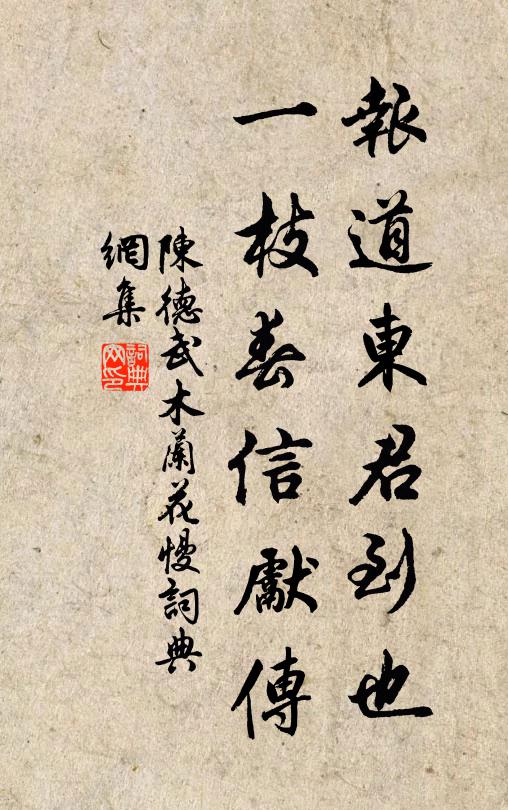 報道東君到也
一枝春信獻傳
陳德武木蘭花慢詞典
網集
詞典
網印